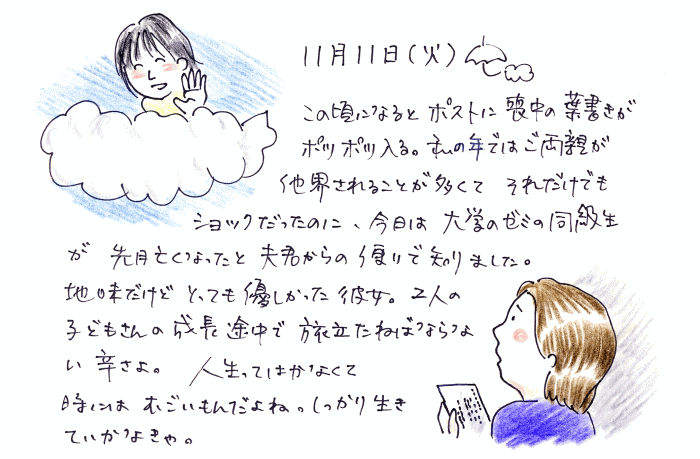 11月11日(火)
この頃になると ポストに 喪中の葉書きが
ポツポツ入る。私の年ではご両親が
他界されることが多くて それだけでも
ショックだったのに、今日は 大学のゼミの同級生
が 先月亡くなったと 夫君からの便りで知りました。
地味だけど とっても優しかった彼女。2人の
子どもさんの成長途中で 旅立たねばならな
い 辛さよ。 人生ってはかなくて
時には むごいもんだよね。しっかり生き
ていかなきゃ。